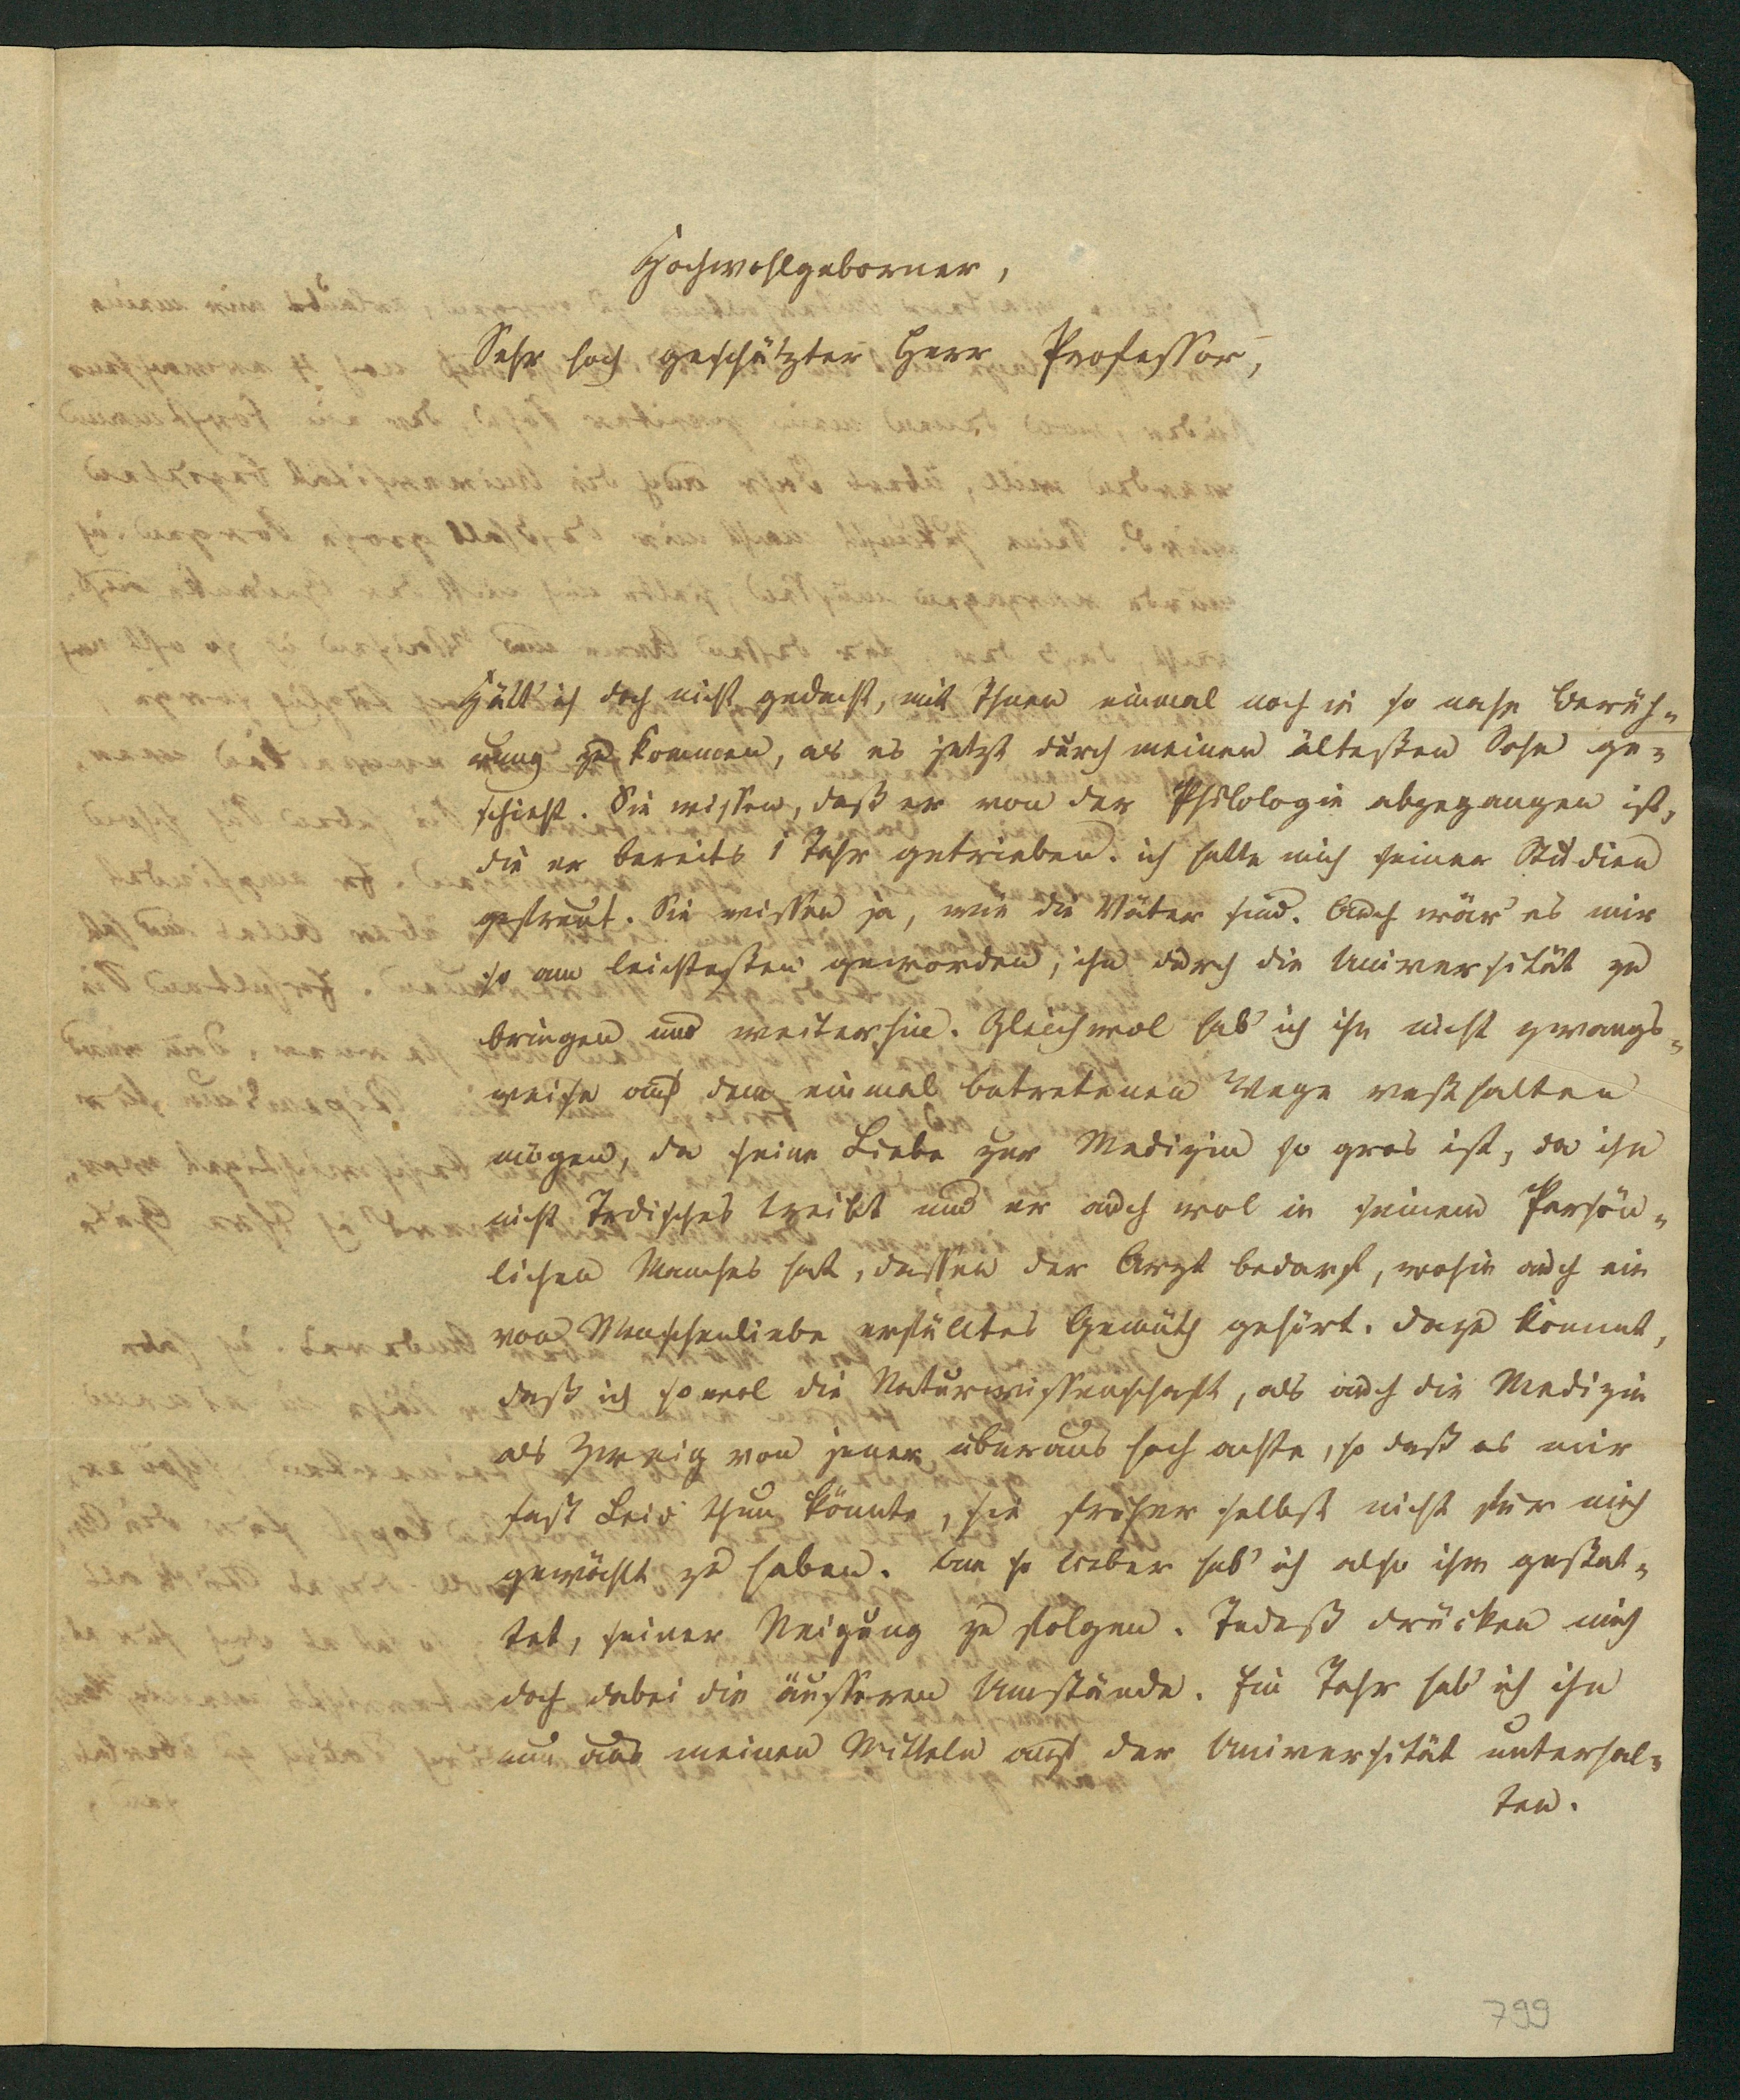 Hochwohlgeborner,
Sehr hoch geschätzter Herr Professor,
Hätt' ich doch nicht gedacht, mit Ihnen einmal noch in so nahe Berüh-
rung zu kommen, als es jetzt durch meinen ältesten Sohn ge-
schieht. Sie wissen, daß er von der Philologie abgegangen ist,
die er bereits 1 Jahr getrieben. ich hatte mich seiner Studien
gefreut. Sie wissen ja, wie die Väter sind. Auch wär' es mir
so am leichtesten geworden, ihn durch die Universität zu
bringen und weiterhin. Gleichwol hab' ich ihn nicht zwangs-
weise auf dem einmal betretenen Wege vesthalten
mögen, da seine Liebe zur Medizin so gros ist, da ihn
nicht Irdisches treibt und er auch wol in seinem Persön-
lichen Manches hat, dessen der Arzt bedarf, wohin auch ein
von Menschenliebe erfülltes Gemüth gehört. dazu kommt,
daß ich sowol die Naturwissenschaft, als auch die Medizin
als Zweig von jener überaus hoch achte, so daß es mir
fast Leid thun könnte, sie früher selbst nicht für mich
gewählt zu haben. Um so lieber hab' ich also ihm gestat-
tet, seiner Neigung zu folgen. Indeß drücken mich
doch dabei die äusseren Umstände. Ein Jahr hab' ich ihn
nun aus meinen Mitteln auf der Universität unterhal-
ten.
799